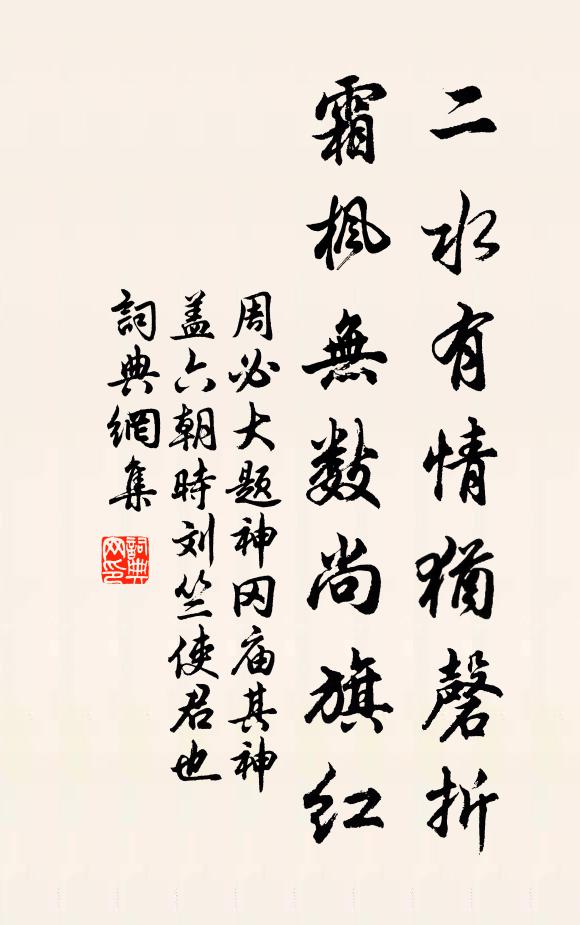 二水有情猶磬折
霜楓無数尚旗紅
周必大题神冈庙其神
盖六朝時刘竺使君也
詞典網集
詞典网印